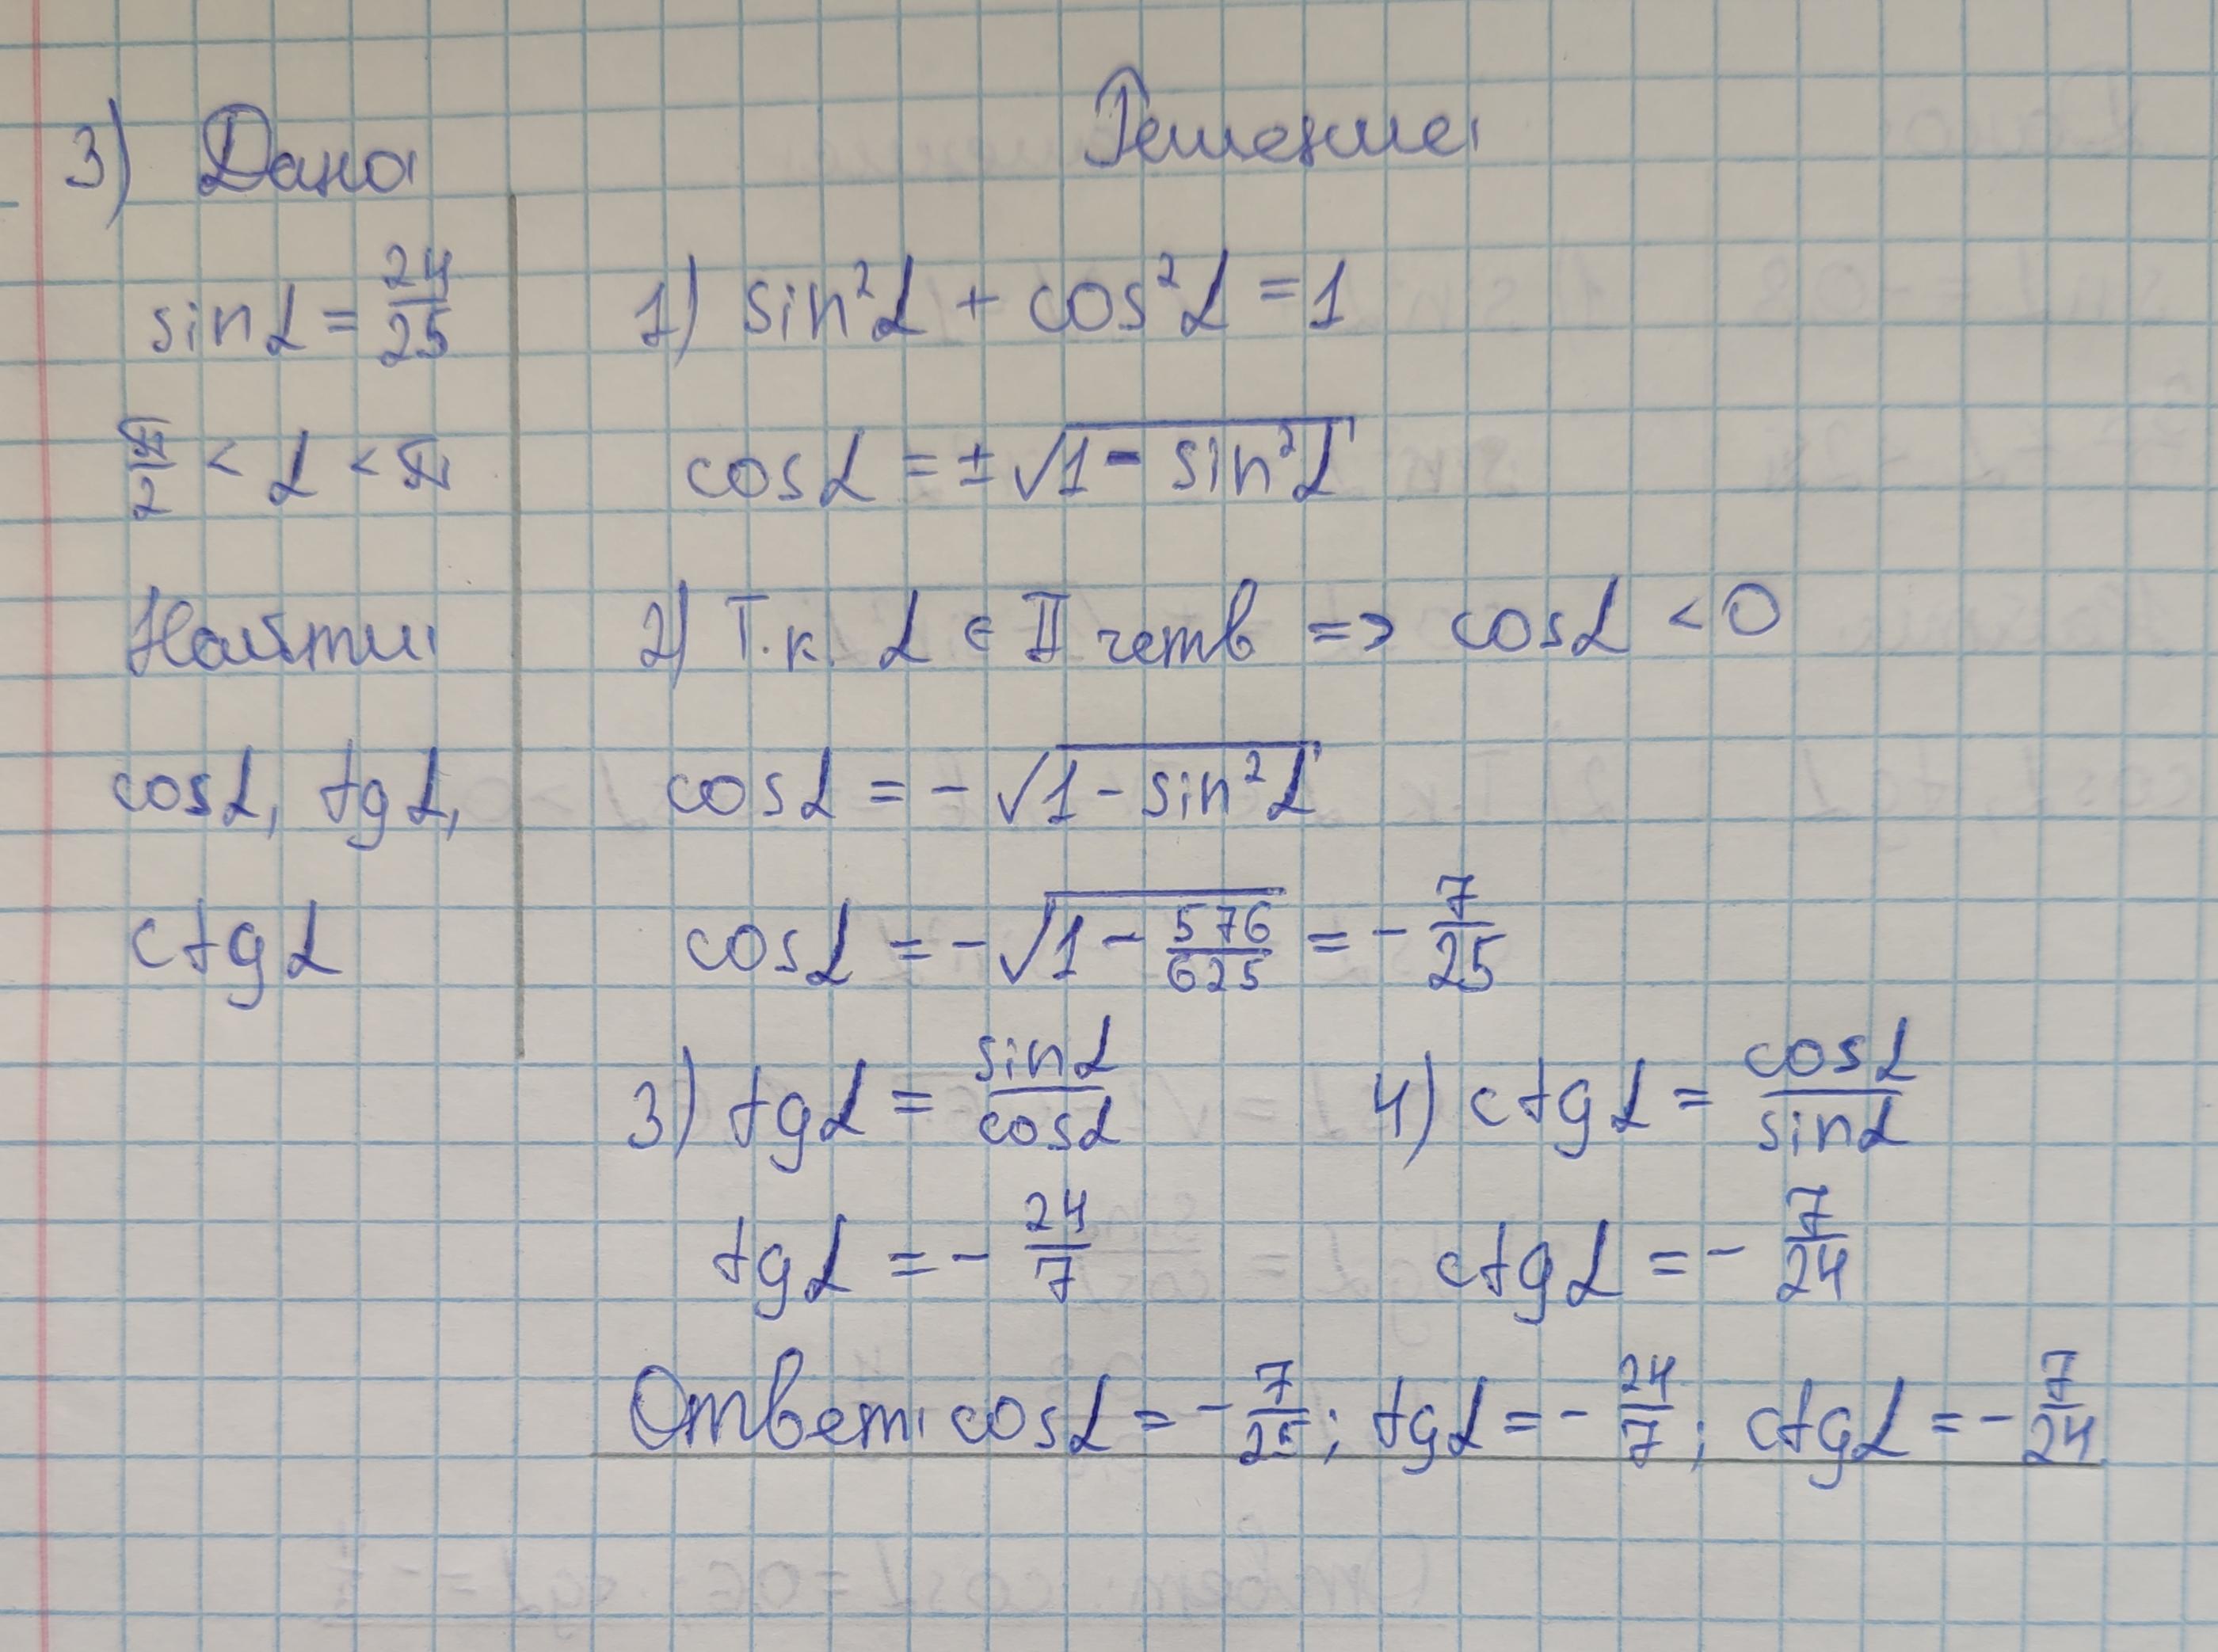 3) Дано: Решение:
sinα = 24/25
π/2 < α < π
Найти:
cosα, tgα,
ctgα
1) sin²α + cos²α = 1
cosα = ± √(1 - sin²α)
2) Т.к. α ∈ II четв => cosα < 0
cosα = - √(1 - sin²α)
cosα = - √(1 - 576/625) = - 7/25
3) tgα = sinα/cosα 4) ctgα = cosα/sinα
tgα = - 24/7 ctgα = - 7/24
Ответ: cosα = - 7/25; tgα = - 24/7; ctgα = - 7/24